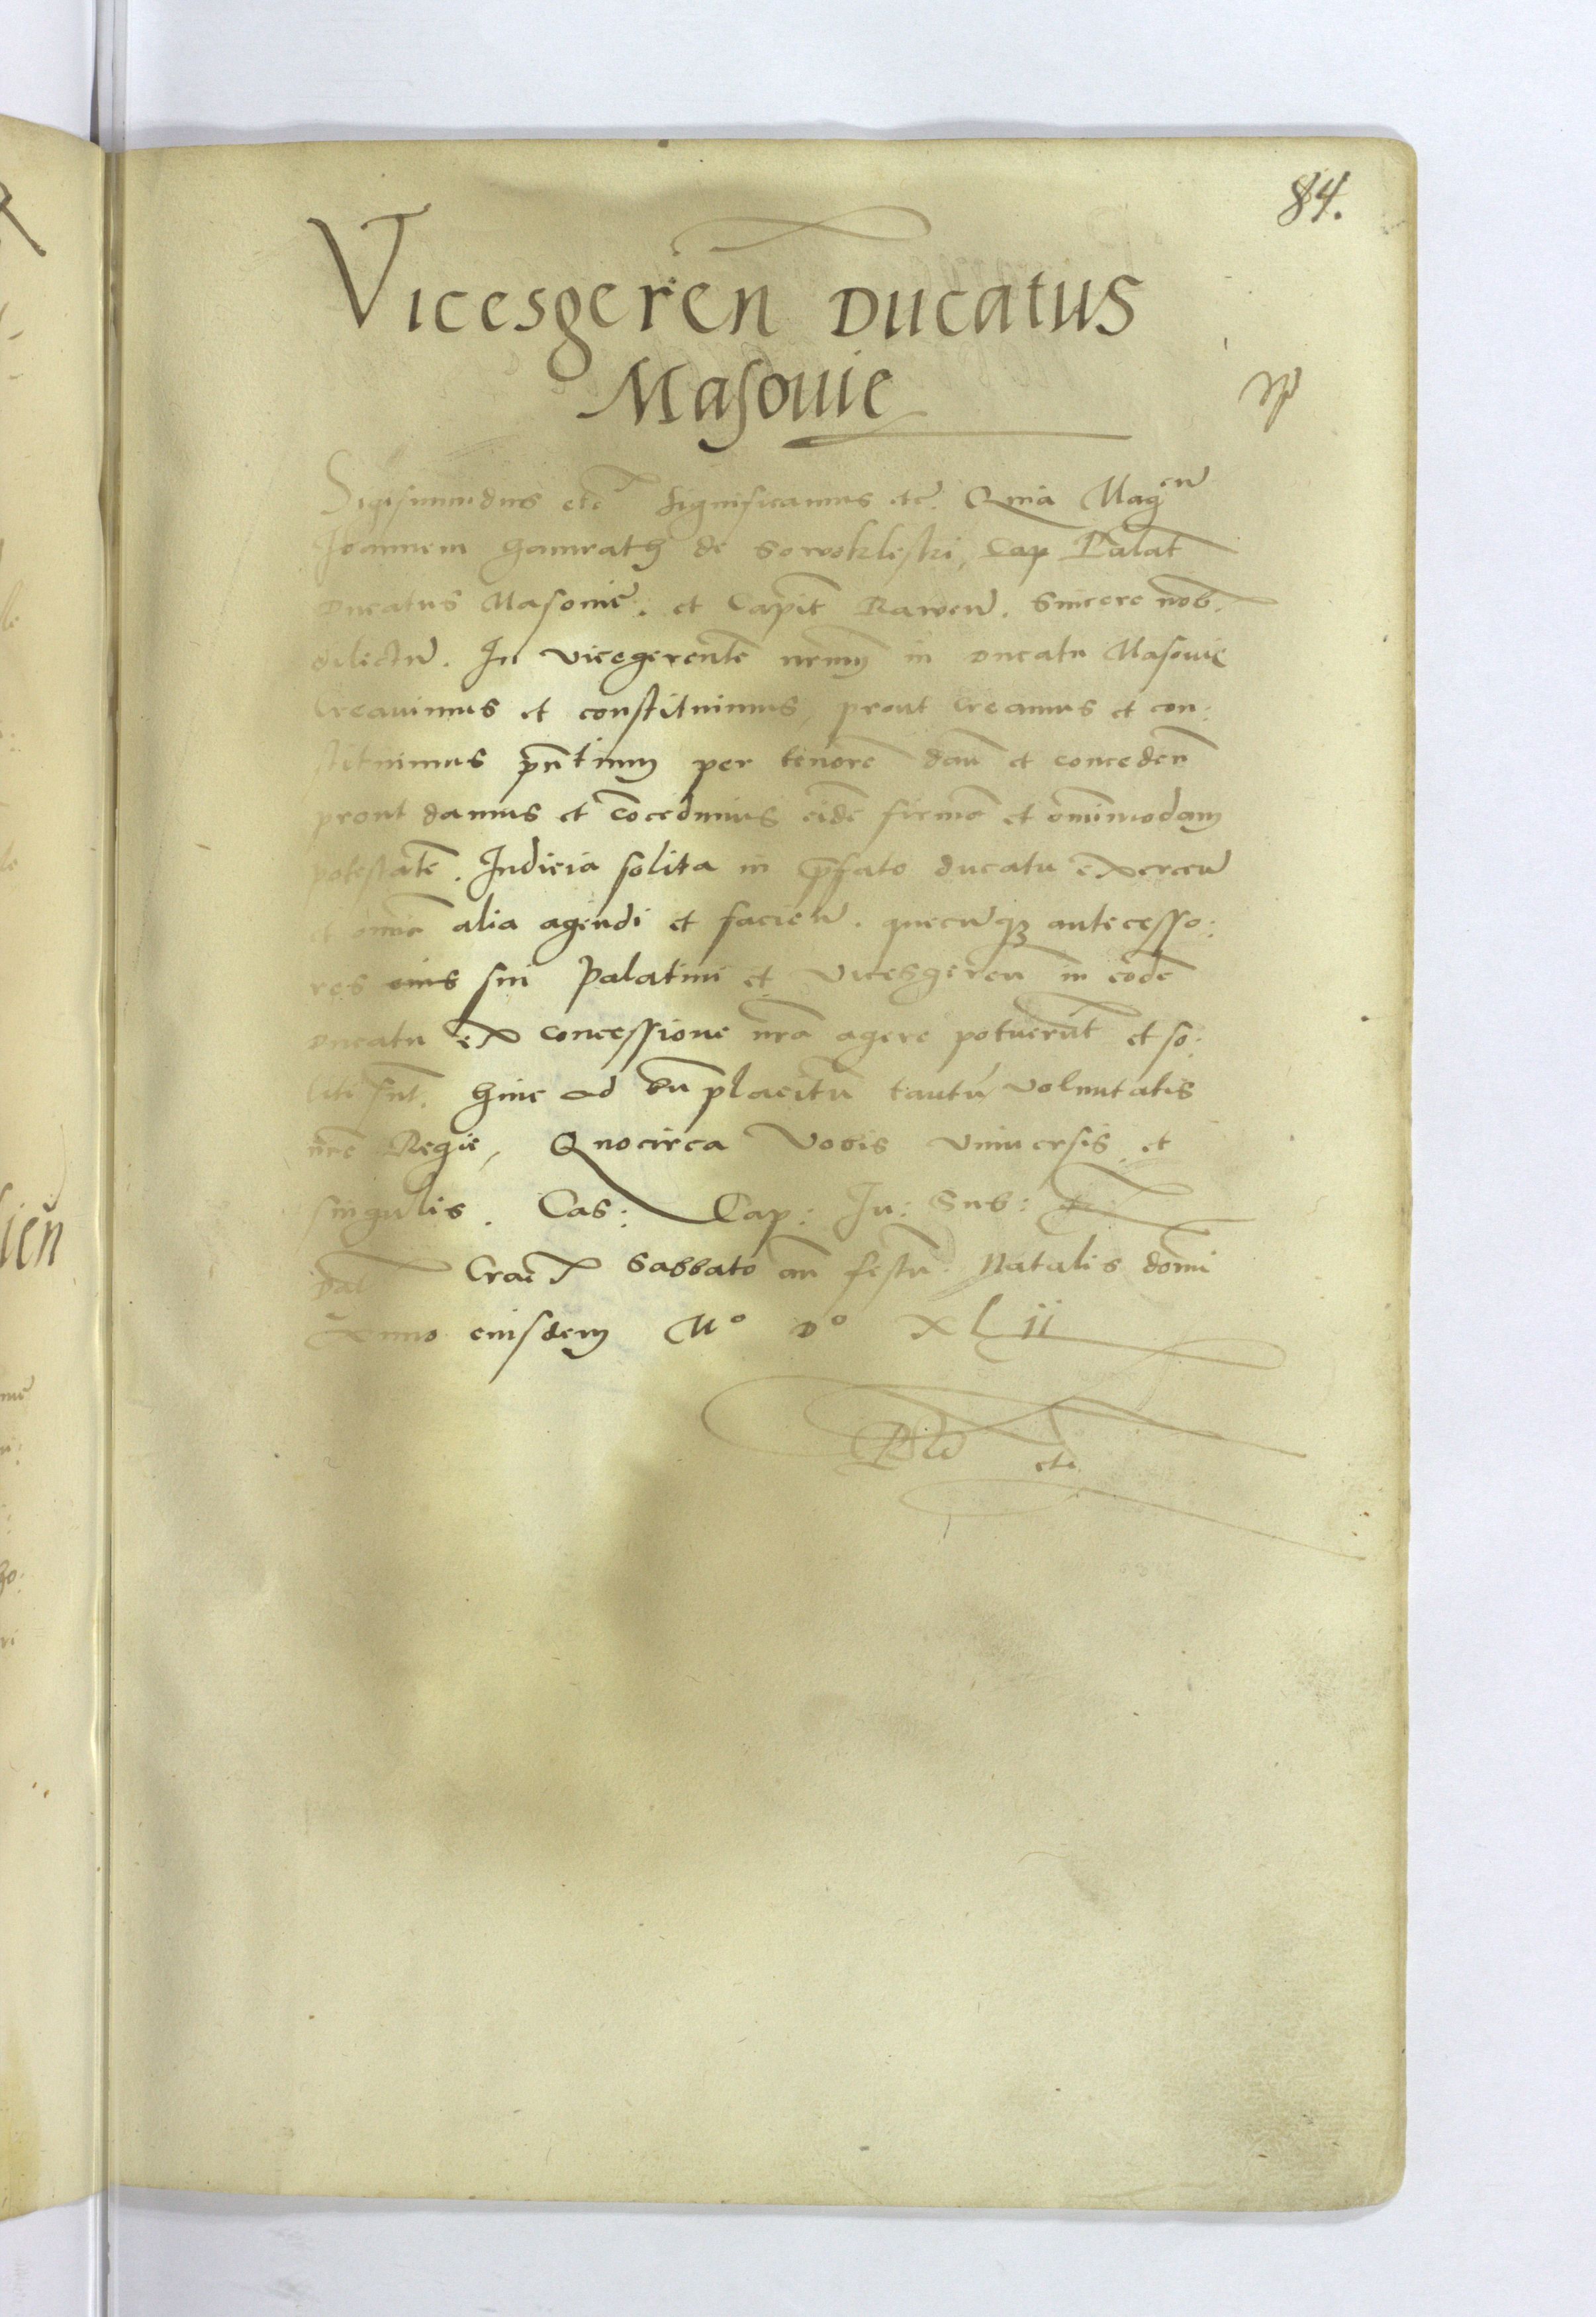 84.
Vicesgeren Ducatus
Masouie
Sigismundus etc Significamus etc. Quia Mag^cu
Joannem Gamrath de Sowokleski, Cap Palat
Ducatus Masouie. et Capit Rawen. Sincere nob.
dilectu. In vicegerente nrm in ducatu Masouie
Creauimus et constituimus, prout Creamus et con:
stituimus pntium per tenore dan et conceden
prout damus et cocedimus eide firma et omnimodam
potestate. Iudicia solita in prfato ducatu exercen
et omia alia agendi et facien. quecuq3 antecesso:
res eius sui Palatini et Vicesgeren in eode
Ducatu ex concessione nra agere potuerut et so:
liti sut. hinc ad bn placitu tantu voluntatis
nre Regie, Quocirca Vobis Vniuersis et
singulis. Cas: Cap: Iu: Sub:
Dat Crac Sabbato an festu Natalis domi
Anno eiusdem M° D° XLii
etc